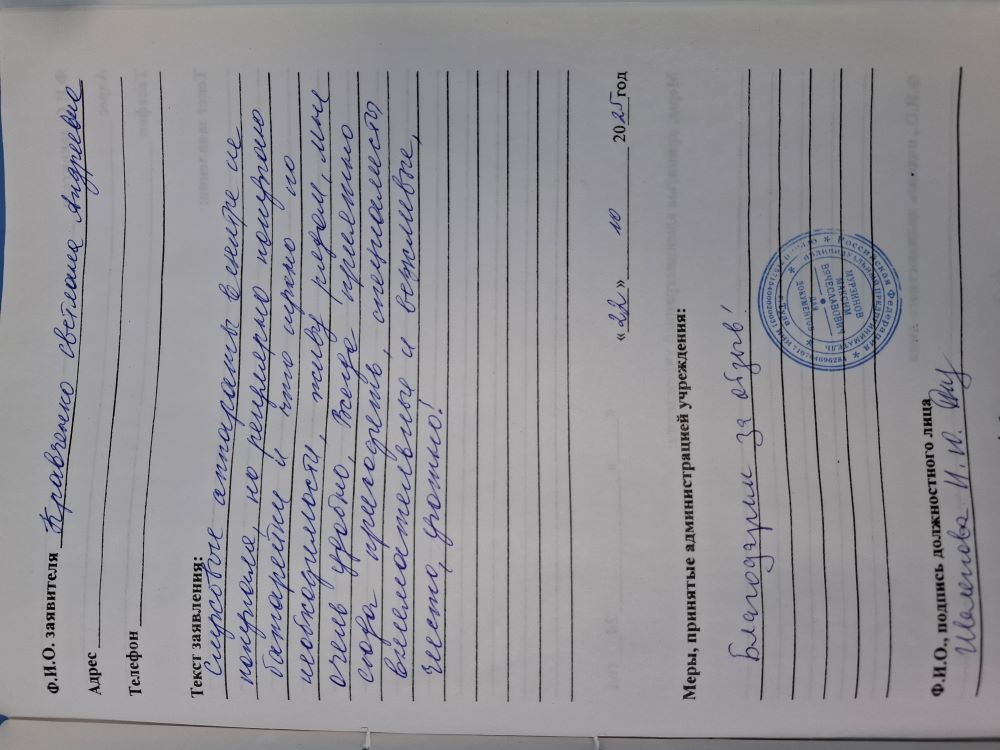 Ф.И.О. заявителя Кравченко Светлана Андреевна
Адрес
Телефон
Текст заявления:
Слуховые аппараты в центре не
покупала, но регулярно покупаю
батарейки и что нужно по
необходимости, живу рядом, мне
очень удобно. Всегда приятно
сюда приходить, специалисты
внимательные и вежливые,
чисто, уютно!
«22» 10 2025 год
Меры, принятые администрацией учреждения:
Благодарим за отзыв!
Российская Федерация
ИНДИВИДУАЛЬНЫЙ ПРЕДПРИНИМАТЕЛЬ
МУРЗИНОВ
МАКСИМ
ВЯЧЕСЛАВОВИЧ
ДЛЯ
ДОКУМЕНТОВ
г. Тула
Ф.И.О., подпись должностного лица
И.Ю.